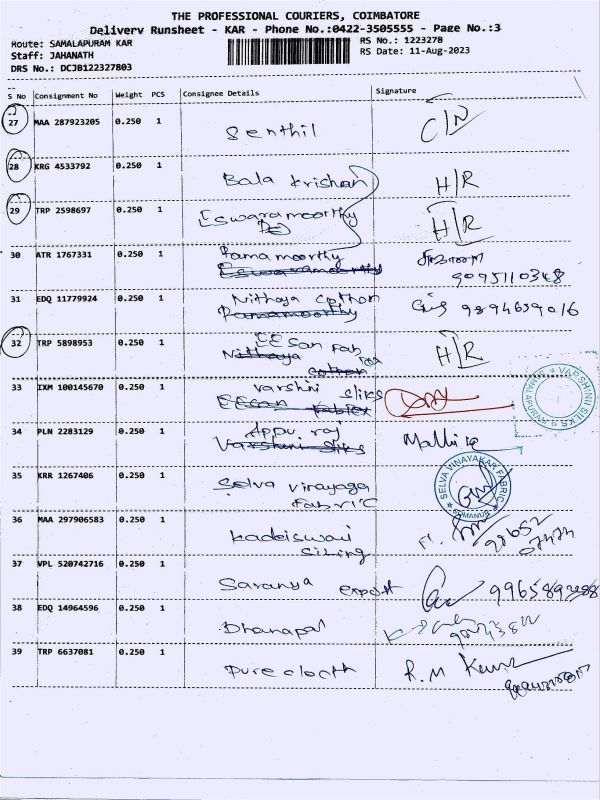 THE PROFESSIONAL COURIERS, COIMBATORE
Delivery Runsheet - KAR - Phone No.:0422-3505555 - Page No.:3
Route: SAMALAPURAM KAR
RS No.: 1223278
Staff: JAHANATH
RS Date: 11-Aug-2023
DRS No.: DCJB122327803
S No Consignment No Weight PCS Consignee Details Signature
27 MAA 287923205 0.250 1 Senthil C/N
28 KRG 4533792 0.250 1 Bala Krishan H/R
29 TRP 2598697 0.250 1 Eswaramoorthy H/R
30 ATR 1767331 0.250 1 Ramamoorthy
Eswaramoorthy 9095110348
31 EDQ 11779924 0.250 1 Nithaya cotton 9894639016
Ramamoorthy
32 TRP 5898953 0.250 1 EESan Fab H/R
Nithaya
cotton
33 IXM 100145670 0.250 1 Varshini Sliks
EEsan Fabtex
VARSHINI SILKS
SAMALAPURAM
34 PLN 2283129 0.250 1 Appu raj
Varshini Sliks
35 KRR 1267406 0.250 1 Selva vinayaga
Fabric
SELVA VINAYAKAR FABRIC
SOMANUR
36 MAA 297906583 0.250 1 Kadeiswari
Sizing
37 VPL 520742716 0.250 1 Saranya export
38 EDQ 14964596 0.250 1 Dhanapal
39 TRP 6637081 0.250 1 Pure cloath R.M Kumar